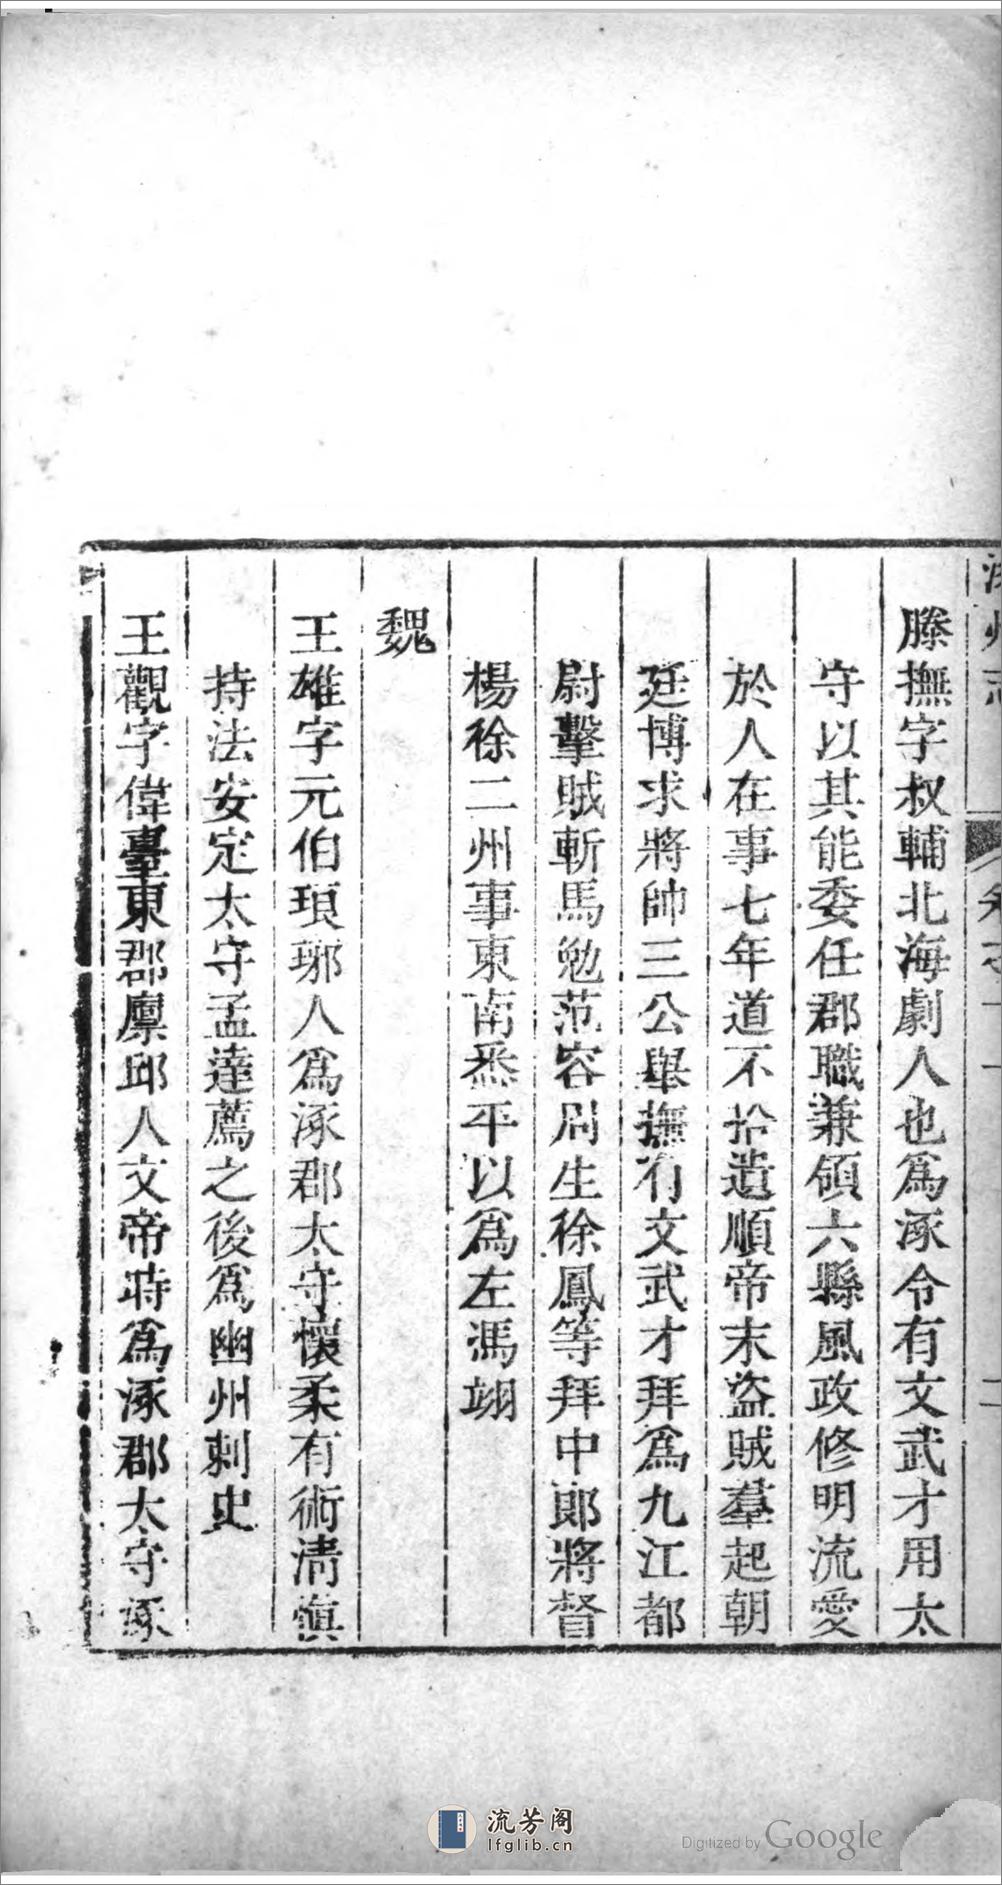 滕撫字叔輔北海劇人也爲涿令有文武才用太
守以其能委任郡職兼領六縣風政修明流愛
於人在事七年道不拾遺順帝末盜賊羣起朝
廷博求將帥三公舉撫有文武才拜爲九江都
尉擊賊斬馬勉范容周生徐鳳等拜中郞將督
楊徐二州事東南悉平以爲左馮翊
魏
王雄字元伯瑣琊人爲涿郡太守懷柔有術淸愼
持法安定太守孟達薦之後爲幽州刺史
王觀字偉臺東郡廩邱人文帝時爲涿郡太守涿
流芳阁
lfglib.cn
Digitized by Google